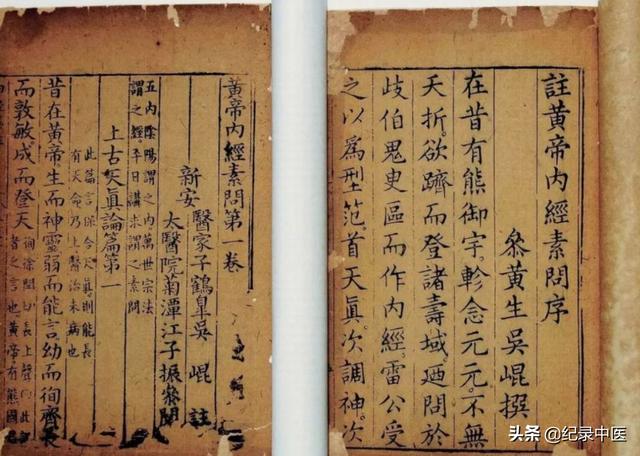 註黃帝内經素問序
叅黃生吳崐撰
在昔有熊御宇。軫念元元。不無
夭折。欲躋而登諸壽域。廼問於
歧伯鬼臾區而作内經。雷公受
之以爲型范。首天眞。次調神。次
黃帝内經素問第一卷
新安
醫家子鶴皐吳 崐 註
太醫院菊潭江子振叅閱
五内陰陽謂之内萬世宗法
謂之經平日講求謂之素問
上古天眞論篇第一
此篇言保合天眞則能長
有天命乃上醫治未病也
昔在黃帝。生而神靈。弱而能言。幼而徇齊。長
而敦敏。成而登天。
徇徐閏切長上聲
者之言也。黃帝有熊國
头条 @纪录中医